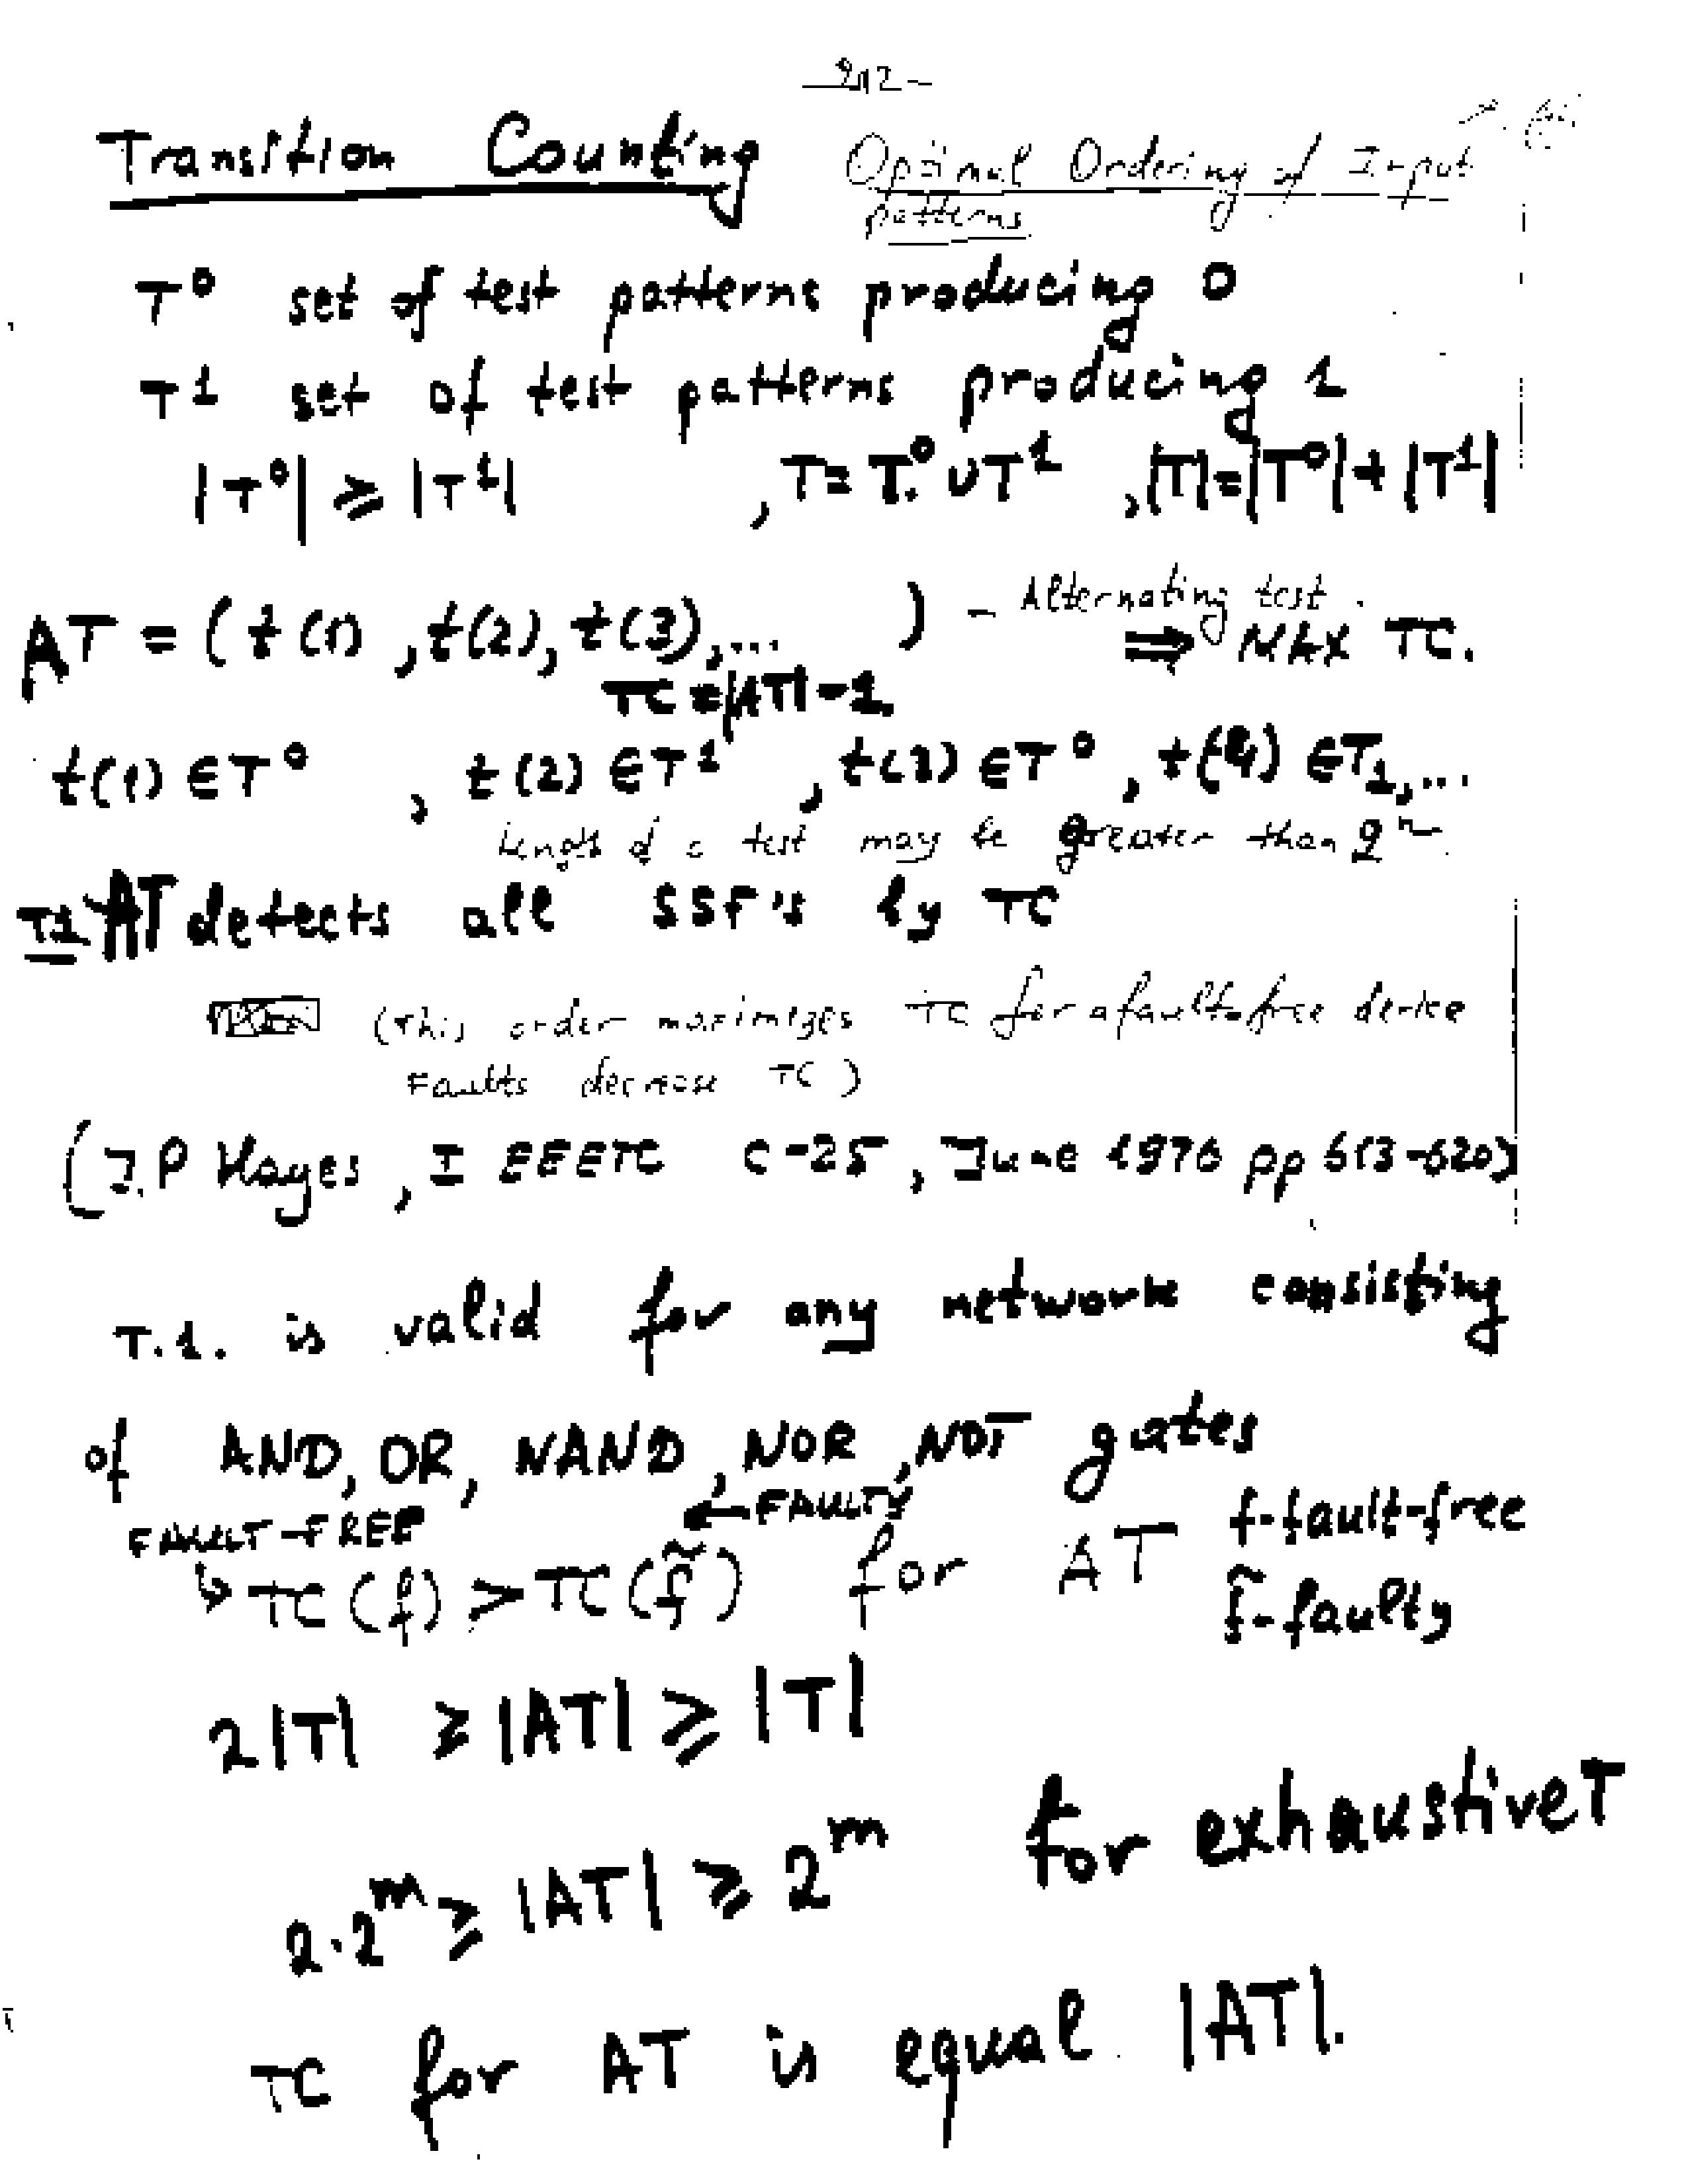 -212-
Transition Counting Optimal Ordering of Input
patterns
T⁰ set of test patterns producing 0
T¹ set of test patterns producing 1
|T⁰| ≥ |T¹| , T = T⁰ ∪ T¹ , |T| = |T⁰| + |T¹|
AT = ( t(1), t(2), t(3), ... ) - Alternating test.
⇒ MAX TC.
TC = |AT| - 1.
t(1) ∈ T⁰ , t(2) ∈ T¹ , t(3) ∈ T⁰ , t(4) ∈ T₁, ...
Length of a test may be greater than 2ⁿ
T1 AT detects all SSF's by TC
(This order maximizes TC for a fault-free device
Faults decrease TC )
(J.P Hayes, IEEETC C-25, June 1976 pp 613-620)
T.1. is valid for any network consisting
of AND, OR, NAND, NOR, NOT gates
FAULT-FREE ← FAULTY f-fault-free
↳ TC(f) > TC(f̃) for AT
f̃-faulty
2|T| ≥ |AT| ≥ |T|
2·2ᵐ ≥ |AT| ≥ 2ᵐ for exhaustive T
TC for AT is equal |AT|.